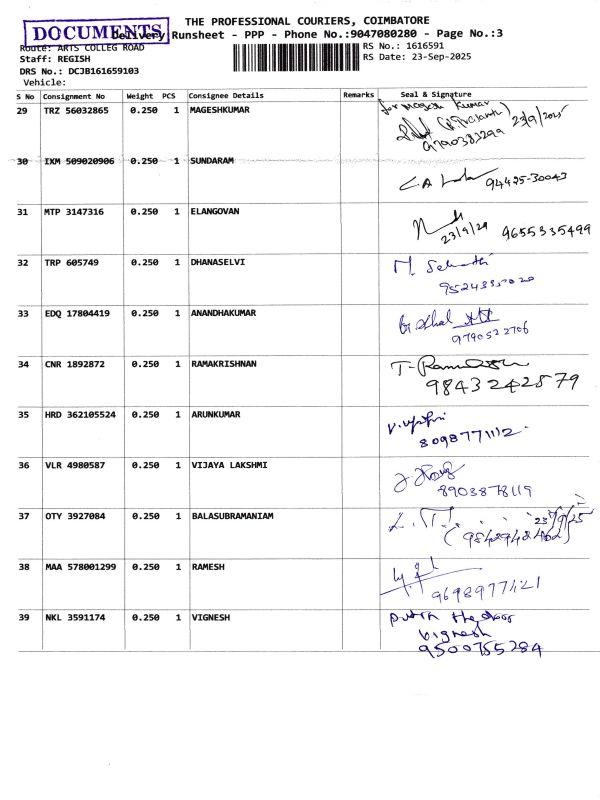 THE PROFESSIONAL COURIERS, COIMBATORE
DOCUMENTS
Delivery Runsheet - PPP - Phone No.:9047080280 - Page No.:3
Route: ARTS COLLEG ROAD
RS No.: 1616591
Staff: REGISH
RS Date: 23-Sep-2025
DRS No.: DCJB161659103
Vehicle:
S No Consignment No Weight PCS Consignee Details Remarks Seal & Signature
29 TRZ 56032865 0.250 1 MAGESHKUMAR
for Magesh Kumar
23/9/2025
9790383299
30 IXM 509020906 0.250 1 SUNDARAM
94425-30043
31 MTP 3147316 0.250 1 ELANGOVAN
9655335499
32 TRP 605749 0.250 1 DHANASELVI
33 EDQ 17804419 0.250 1 ANANDHAKUMAR
9790522706
34 CNR 1892872 0.250 1 RAMAKRISHNAN
9843242579
35 HRD 362105524 0.250 1 ARUNKUMAR
8098771112
36 VLR 4980587 0.250 1 VIJAYA LAKSHMI
8903878119
37 OTY 3927084 0.250 1 BALASUBRAMANIAM
23/9/25
38 MAA 578001299 0.250 1 RAMESH
39 NKL 3591174 0.250 1 VIGNESH
Vignesh
9500755284